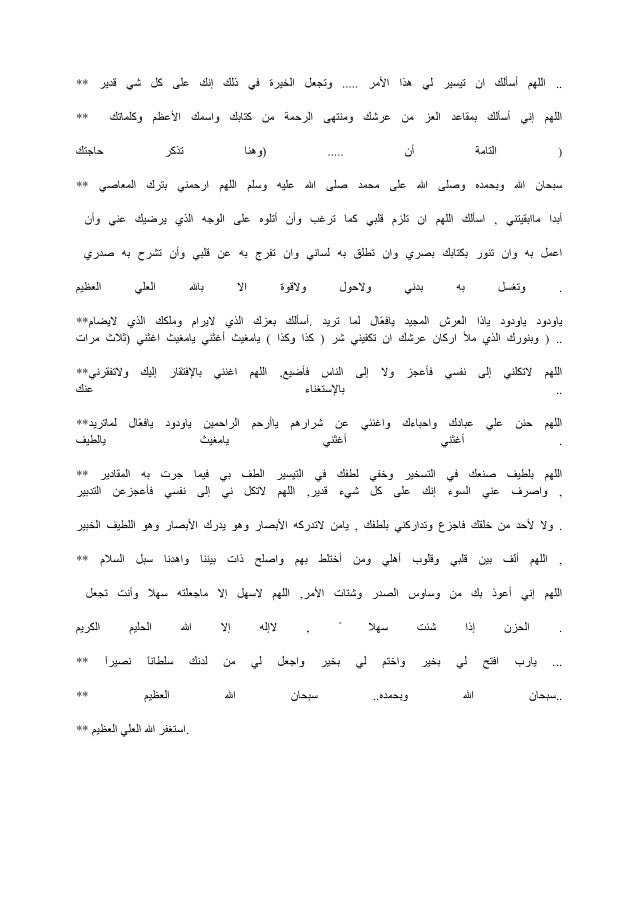 ** اللهم أسألك ان تيسير لي هذا الأمر ..... وتجعل الخيرة في ذلك إنك على كل شي قدير ..
** اللهم إني أسألك بمقاعد العز من عرشك ومنتهى الرحمة من كتابك واسمك الأعظم وكلماتك
التامة أن ..... (وهنا تذكر حاجتك )
** سبحان الله وبحمده وصلى الله على محمد صلى الله عليه وسلم اللهم ارحمني بترك المعاصي
أبدا ماابقيتني , اسألك اللهم ان تلزم قلبي كما ترغب وأن أتلوه على الوجه الذي يرضيك عني وأن
اعمل به وان تنور بكتابك بصري وان تطلق به لساني وان تفرج به عن قلبي وأن تشرح به صدري
وتغسل به بدني ولاحول ولاقوة الا بالله العلي العظيم .
**ياودود ياودود ياذا العرش المجيد يافعّال لما تريد .أسألك بعزك الذي لايرام وملكك الذي لايضام
وبنورك الذي ملأ اركان عرشك ان تكفيني شر ( كذا وكذا ) يامغيث أغثني يامغيث اغثني (ثلاث مرات ) ..
**اللهم لاتكلني إلى نفسي فأعجز ولا إلى الناس فأضيع, اللهم اغنني بالإفتقار إليك ولاتفقرني
بالإستغناء عنك ..
**اللهم حنن علي عبادك واحباءك واغنني عن شرارهم ياأرحم الراحمين ياودود يافعّال لماتريد
أغثني أغثني يامغيث يالطيف .
** اللهم بلطيف صنعك في التسخير وخفي لطفك في التيسير الطف بي فيما جرت به المقادير
واصرف عني السوء إنك على كل شيء قدير, اللهم لاتكل ني إلى نفسي فأعجزعن التدبير ,
ولا لأحد من خلقك فاجزع وتداركني بلطفك , يامن لاتدركه الأبصار وهو يدرك الأبصار وهو اللطيف الخبير .
** اللهم ألف بين قلبي وقلوب أهلي ومن أختلط بهم واصلح ذات بيننا واهدنا سبل السلام ,
اللهم إني أعوذ بك من وساوس الصدر وشتات الأمر, اللهم لاسهل إلا ماجعلته سهلا وأنت تجعل
الحزن إذا شئت سهلا ً , لاإله إلا الله الحليم الكريم .
** يارب افتح لي بخير واختم لي بخير واجعل لي من لدنك سلطاناً نصيراً ...
** سبحان الله وبحمده.. سبحان الله العظيم..
** استغفر الله العلي العظيم.